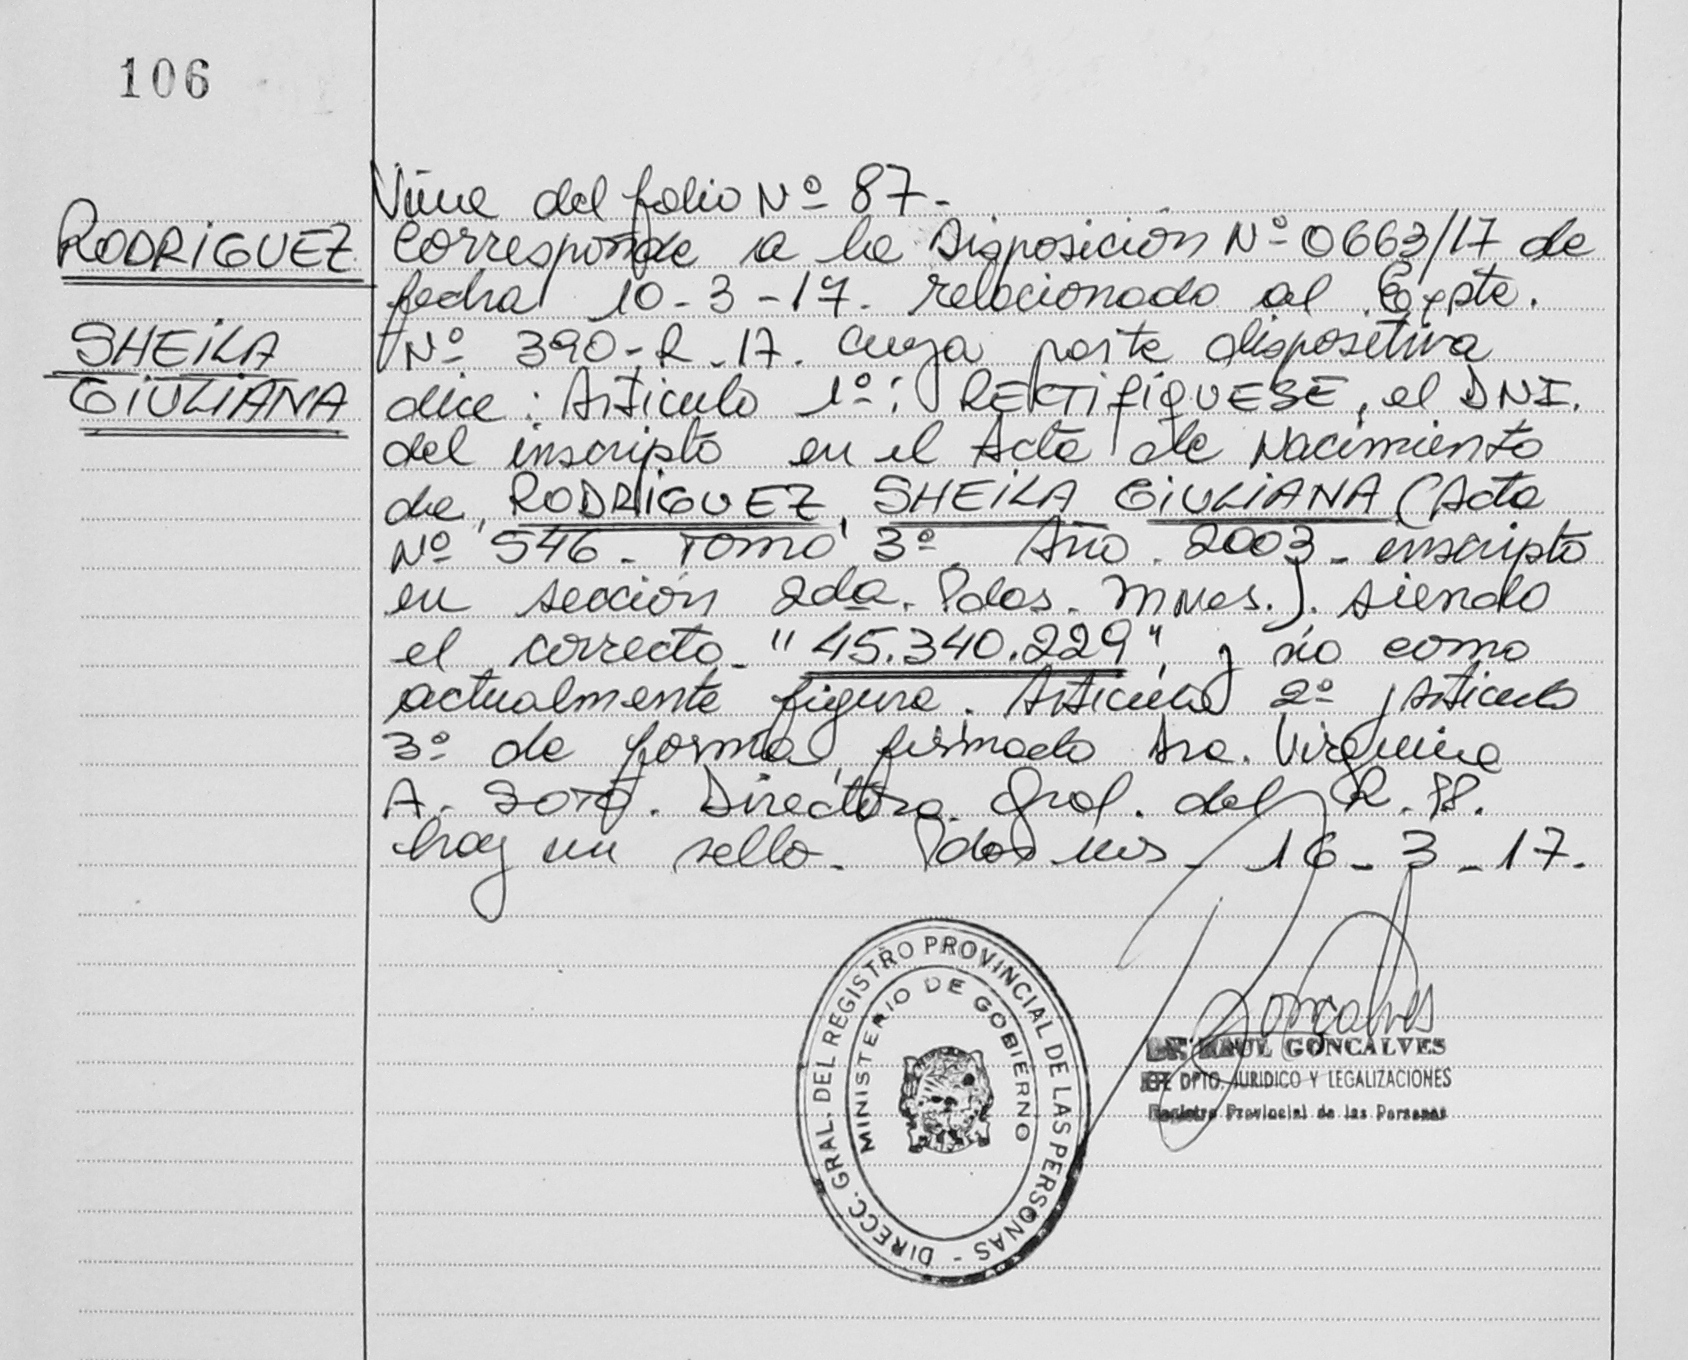 106
RODRIGUEZ
SHEILA
GIULIANA
Viene del folio Nº 87.-
Corresponde a la Disposición Nº 0663/17 de
fecha 10-3-17. relacionado al Expte.
Nº 390-R-17. cuya parte dispositiva
dice: Articulo 1º: RECTIFIQUESE, el DNI.
del inscripto en el Acta de Nacimiento
de, RODRIGUEZ, SHEILA GIULIANA (Acta
Nº 546- Tomo 3º. Año. 2003- inscripto
en sección 2da. Pdas. Mnes.). siendo
el correcto- "45.340.229", y no como
actualmente figura. Articulo 2º, Articulo
3º de forma, firmado Dra. Virginia
A. SOTO. Directora. Gral. del R.PP.
hay un sello- Pdas Mns- 16-3-17.
DIRECC. GRAL. DEL REGISTRO PROVINCIAL DE LAS PERSONAS -
MINISTERIO DE GOBIERNO
Goncalves
DR. RAUL GONCALVES
JEFE DPTO. JURIDICO Y LEGALIZACIONES
Registro Provincial de las Personas